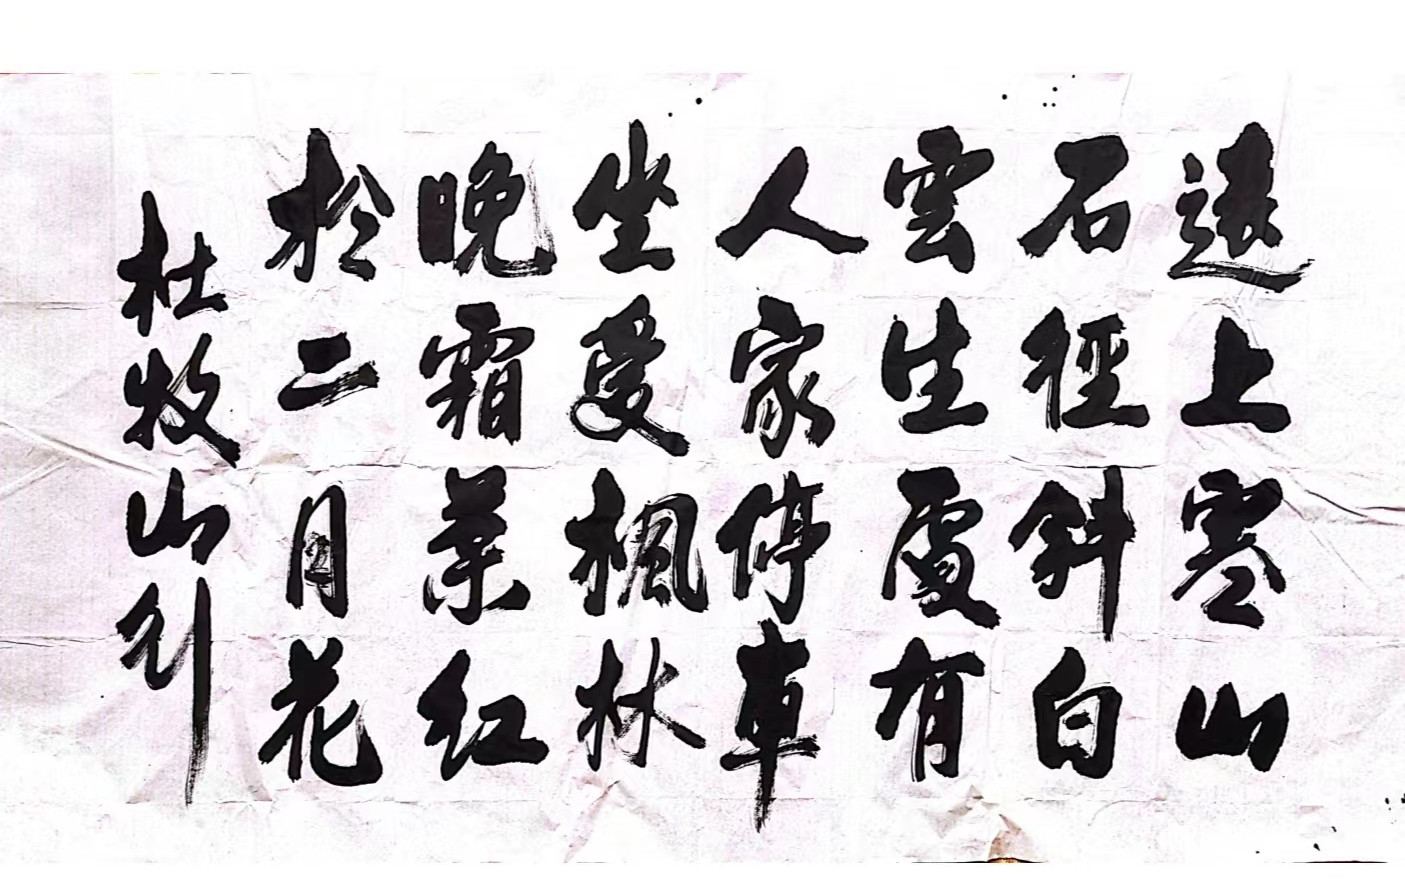 遠上寒山
石徑斜白
雲生處有
人家停車
坐愛楓林
晚霜葉红
於二月花
杜牧山行